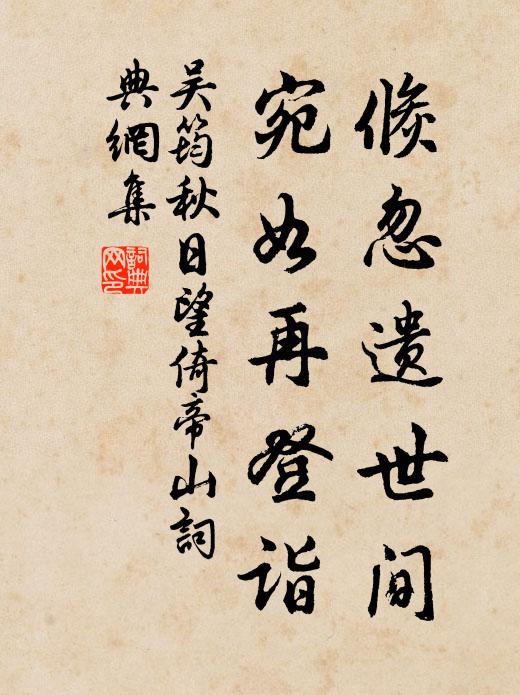 倏忽遗世间
宛如再登诣
吴筠秋日望倚帝山詞
典網集
詞典
网印